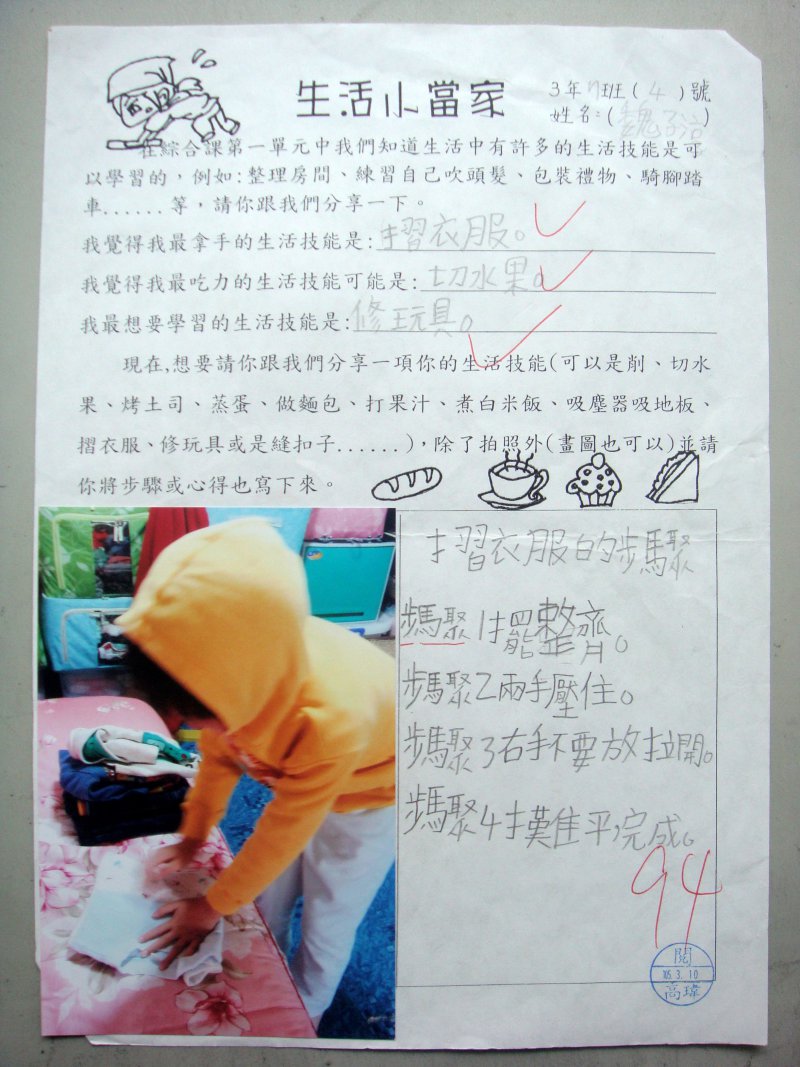 生活小當家
3年7班(4)號
姓名:(魏子洽)
在綜合課第一單元中我們知道生活中有許多的生活技能是可
以學習的，例如:整理房間、練習自己吹頭髮、包裝禮物、騎腳踏
車......等，請你跟我們分享一下。
我覺得我最拿手的生活技能是:摺衣服。
我覺得我最吃力的生活技能可能是:切水果。
我最想要學習的生活技能是:修玩具。
現在,想要請你跟我們分享一項你的生活技能(可以是削、切水
果、烤土司、蒸蛋、做麵包、打果汁、煮白米飯、吸塵器吸地板、
摺衣服、修玩具或是縫扣子......)，除了拍照外(畫圖也可以)並請
你將步驟或心得也寫下來。
摺衣服的步驟
步驟1擺整齊。
步驟2兩手壓住。
步驟3右手不要放拉開。
步驟4攤平完成。
94
閱
105.3.10
高瑋